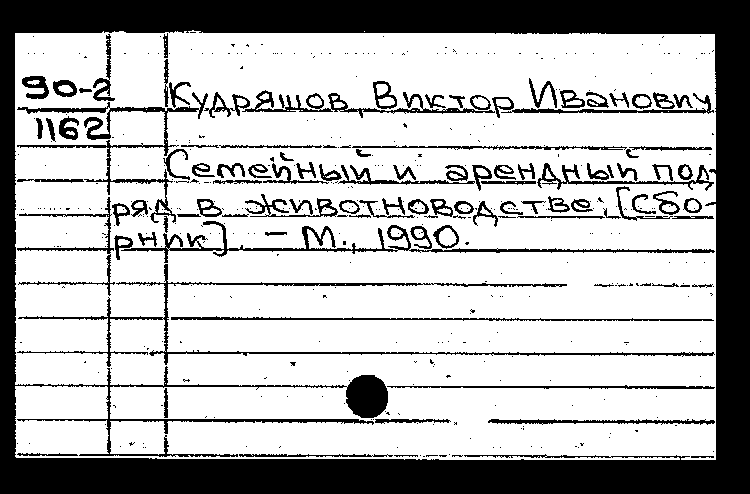 90-2 Кудряшов, Виктор Иванович
1162
Семейный и арендный под-
ряд в животноводстве: [Сбо-
рник]. – М., 1990.